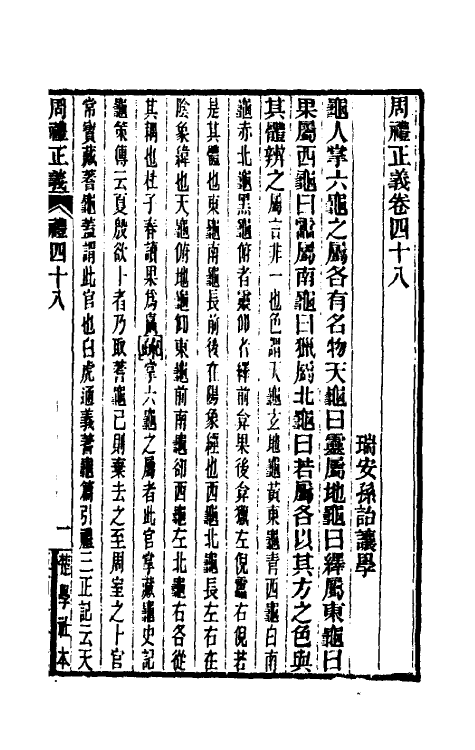 周禮正義卷四十八
瑞安孫詒讓學
龜人掌六龜之屬各有名物天龜曰靈屬地龜曰繹屬東龜曰
果屬西龜曰靁屬南龜曰獵屬北龜曰若屬各以其方之色與
其體辨之屬言非一也色謂天龜玄地龜黃東龜青西龜白南
龜赤北龜黑龜俯者靈仰者繹前弇果後弇獵左倪靁右倪若
是其體也東龜南龜長前後在陽象經也西龜北龜長左右在
陰象緯也天龜俯地龜仰東龜前南龜卻西龜左北龜右各從
其耦也杜子春讀果為臝疏掌六龜之屬者此官掌藏龜史記
龜策傳云夏殷欲卜者乃取蓍龜已則棄去之至周室之卜官
常寶藏蓍龜蓋謂此官也白虎通義蓍龜篇引禮三正記云天
周禮正義 禮四十八 一 楚學社本